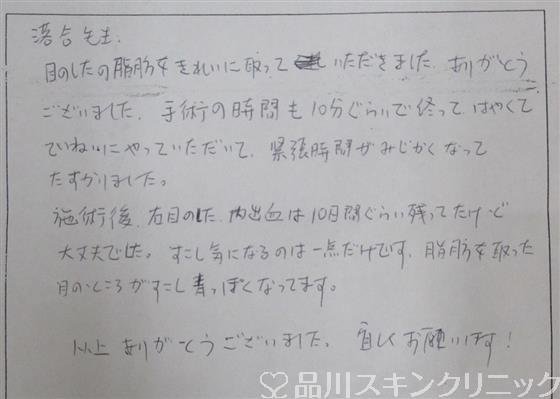 落合先生.
目のしたの脂肪をきれいに取って いただきました. ありがとう
ございました. 手術の時間も10分ぐらいで終って、はやくて
ていねいにやっていただいて、緊張時間がみじかくなって
たすかりました。
施術後、右目のした、内出血は10日間ぐらい残ってたけど
大丈夫でした。すこし気になるのは一点だけです、脂肪を取った
目のところがすこし青っぽくなってます。
以上 ありがとうございました。 宜しくお願いします!
品川スキンクリニック